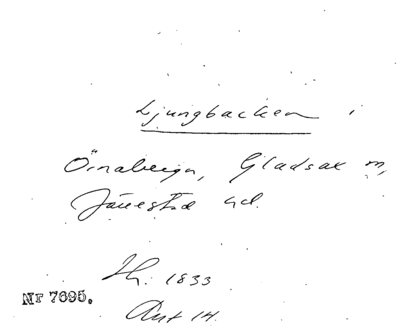 Ljungbacken i
Örnaberga, Gladsax m,
Järrestad hd.
1833
Nr 7695.
Ant 14.